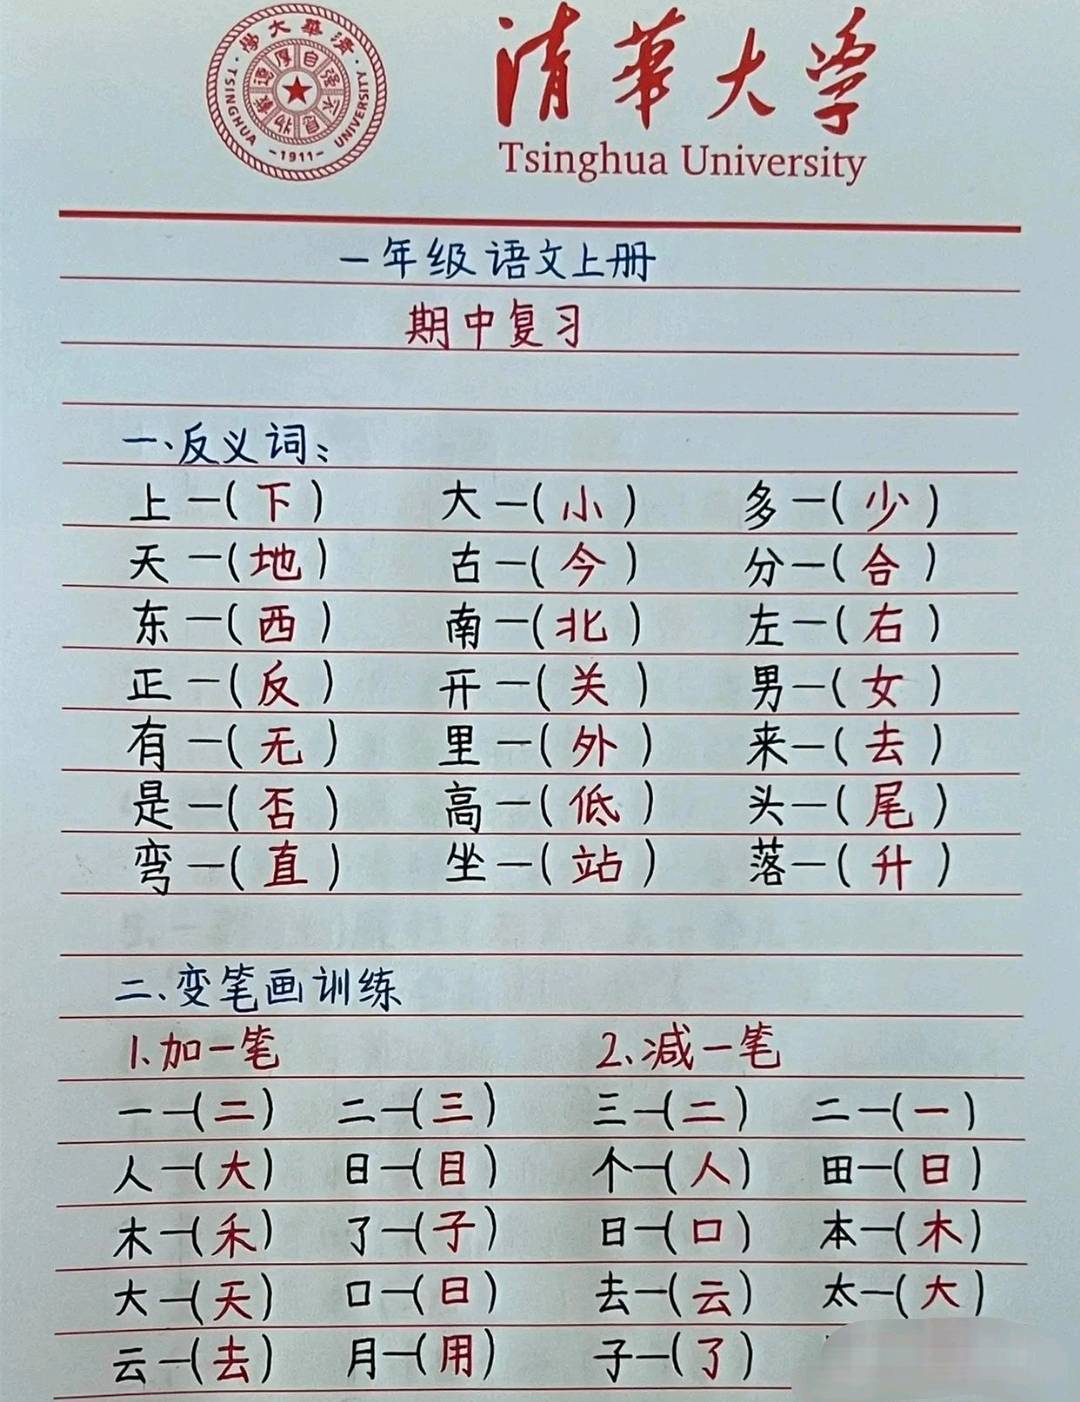 清華大学
Tsinghua University
清華大學
TSINGHUA UNIVERSITY
自强不息厚德載物
-1911-
一年级语文上册
期中复习
一、反义词:
上一(下) 大一(小) 多一(少)
天一(地) 古一(今) 分一(合)
东一(西) 南一(北) 左一(右)
正一(反) 开一(关) 男一(女)
有一(无) 里一(外) 来一(去)
是一(否) 高一(低) 头一(尾)
弯一(直) 坐一(站) 落一(升)
二、变笔画训练
1、加一笔 2、减一笔
一一(二) 二一(三) 三一(二) 二一(一)
人一(大) 日一(目) 个一(人) 田一(日)
木一(禾) 了一(子) 日一(口) 本一(木)
大一(天) 口一(日) 去一(云) 太一(大)
云一(去) 月一(用) 子一(了)